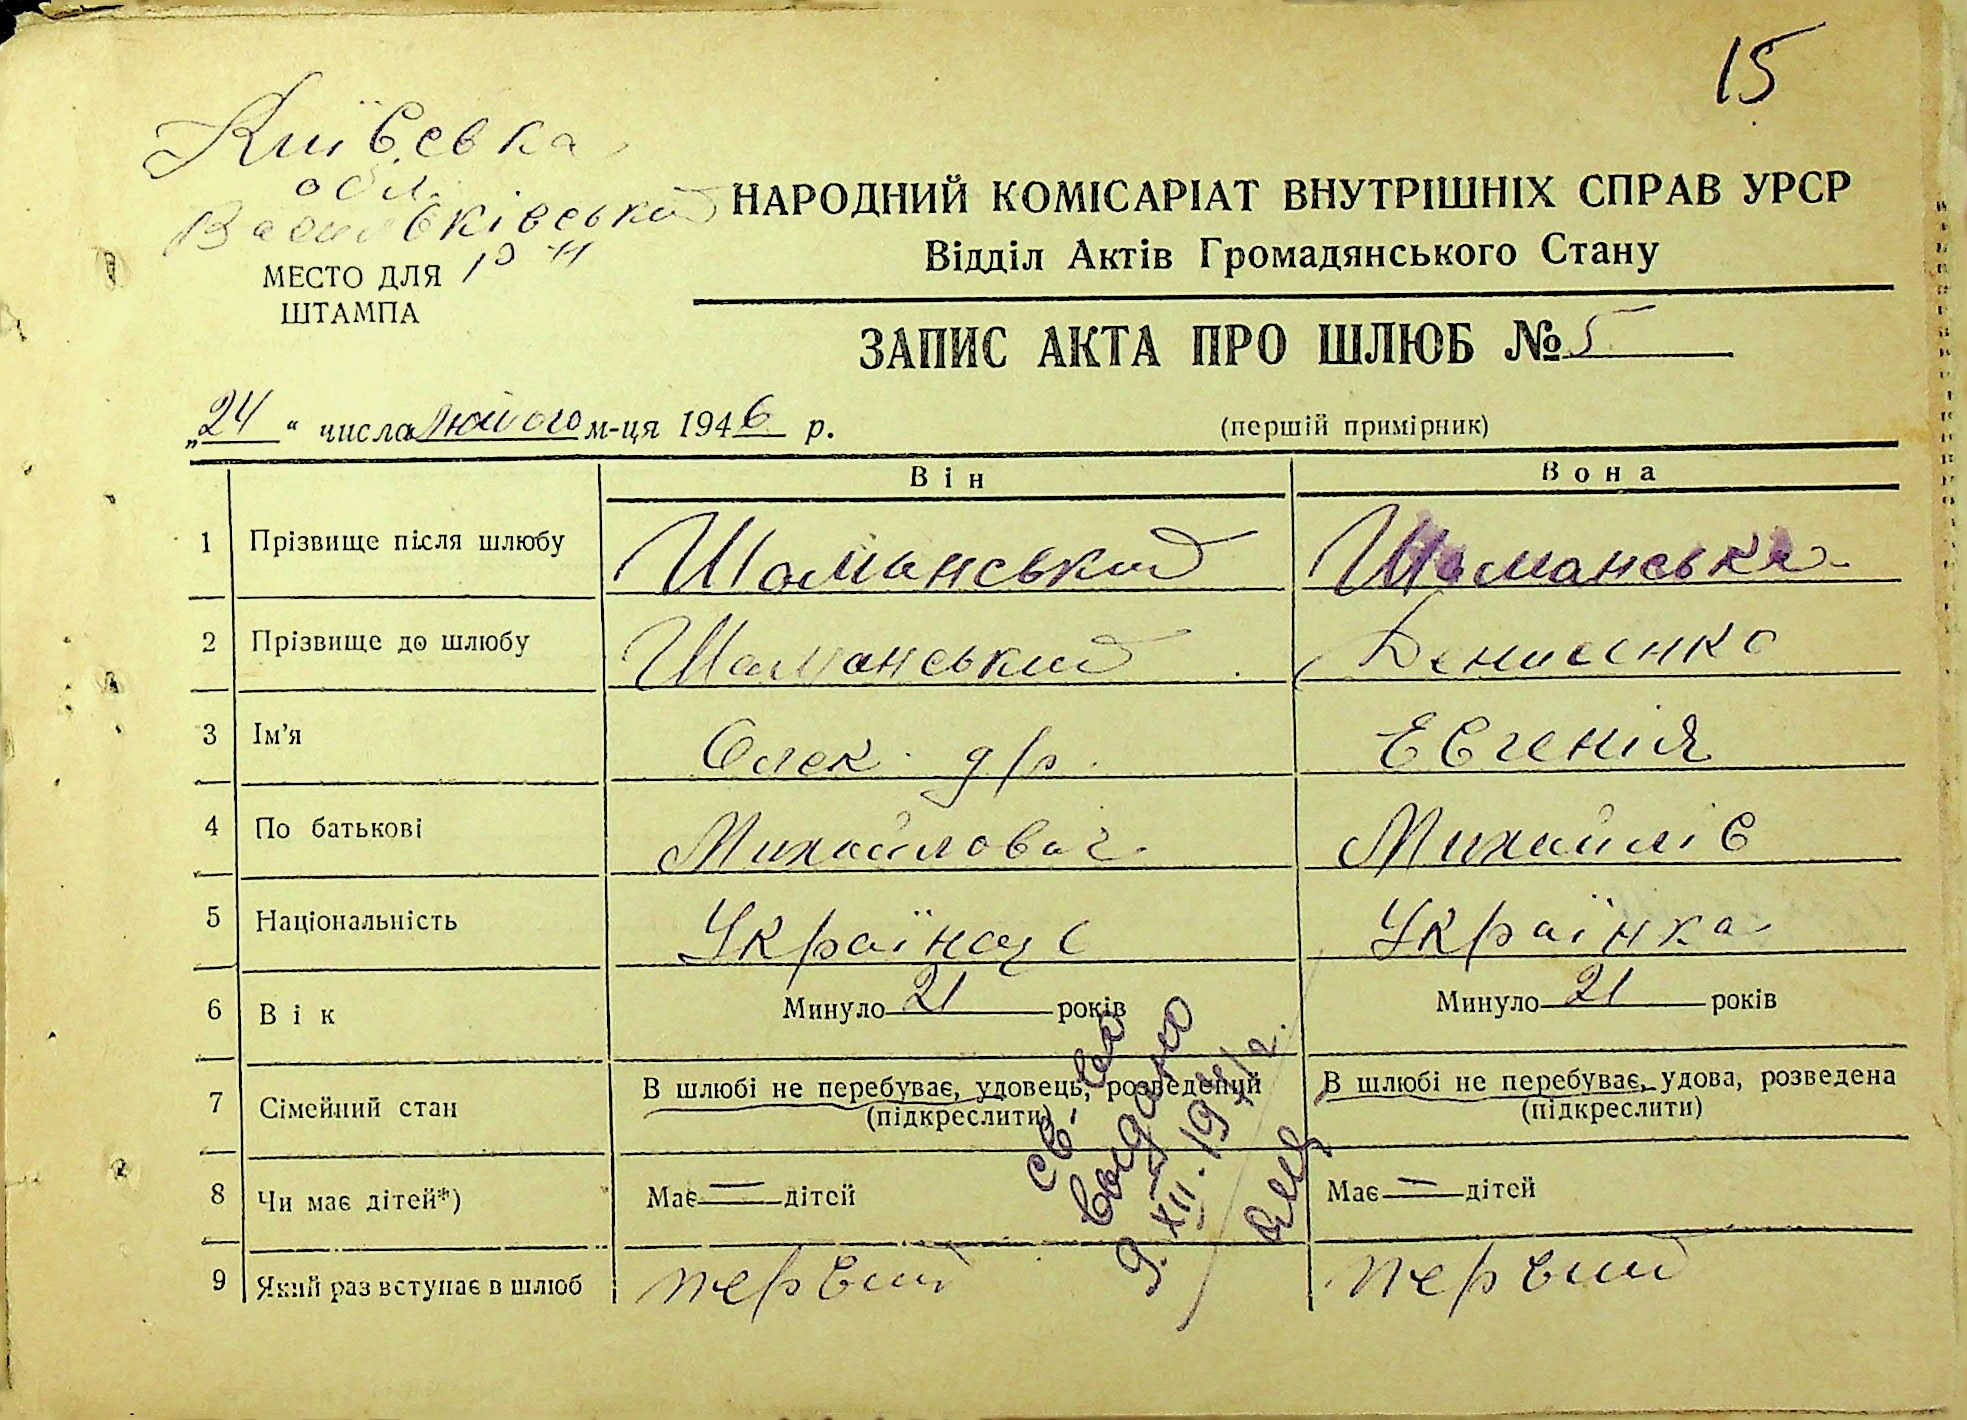 15
Київська
обл.
Васильківський
р-н
МЕСТО ДЛЯ
ШТАМПА
НАРОДНИЙ КОМІСАРІАТ ВНУТРІШНІХ СПРАВ УРСР
Відділ Актів Громадянського Стану
ЗАПИС АКТА ПРО ШЛЮБ № 5
„24“ числа лютого м-ця 1946 р.
(першій примірник)
Він
Вона
1 Прізвище після шлюбу Шаманський Шаманська
2 Прізвище до шлюбу Шаманський Денисенко
3 Ім'я Олек др. Евгенія
4 По батькові Михайлович Михайлів
5 Національність Українец Українка
6 Вік Минуло 21 років Минуло 21 років
7 Сімейний стан В шлюбі не перебуває, удовець, розведений В шлюбі не перебуває, удова, розведена
(підкреслити) (підкреслити)
8 Чи має дітей*) Має — дітей Має — дітей
9 Який раз вступає в шлюб первий первий
св. во
выдано
9.XII.19